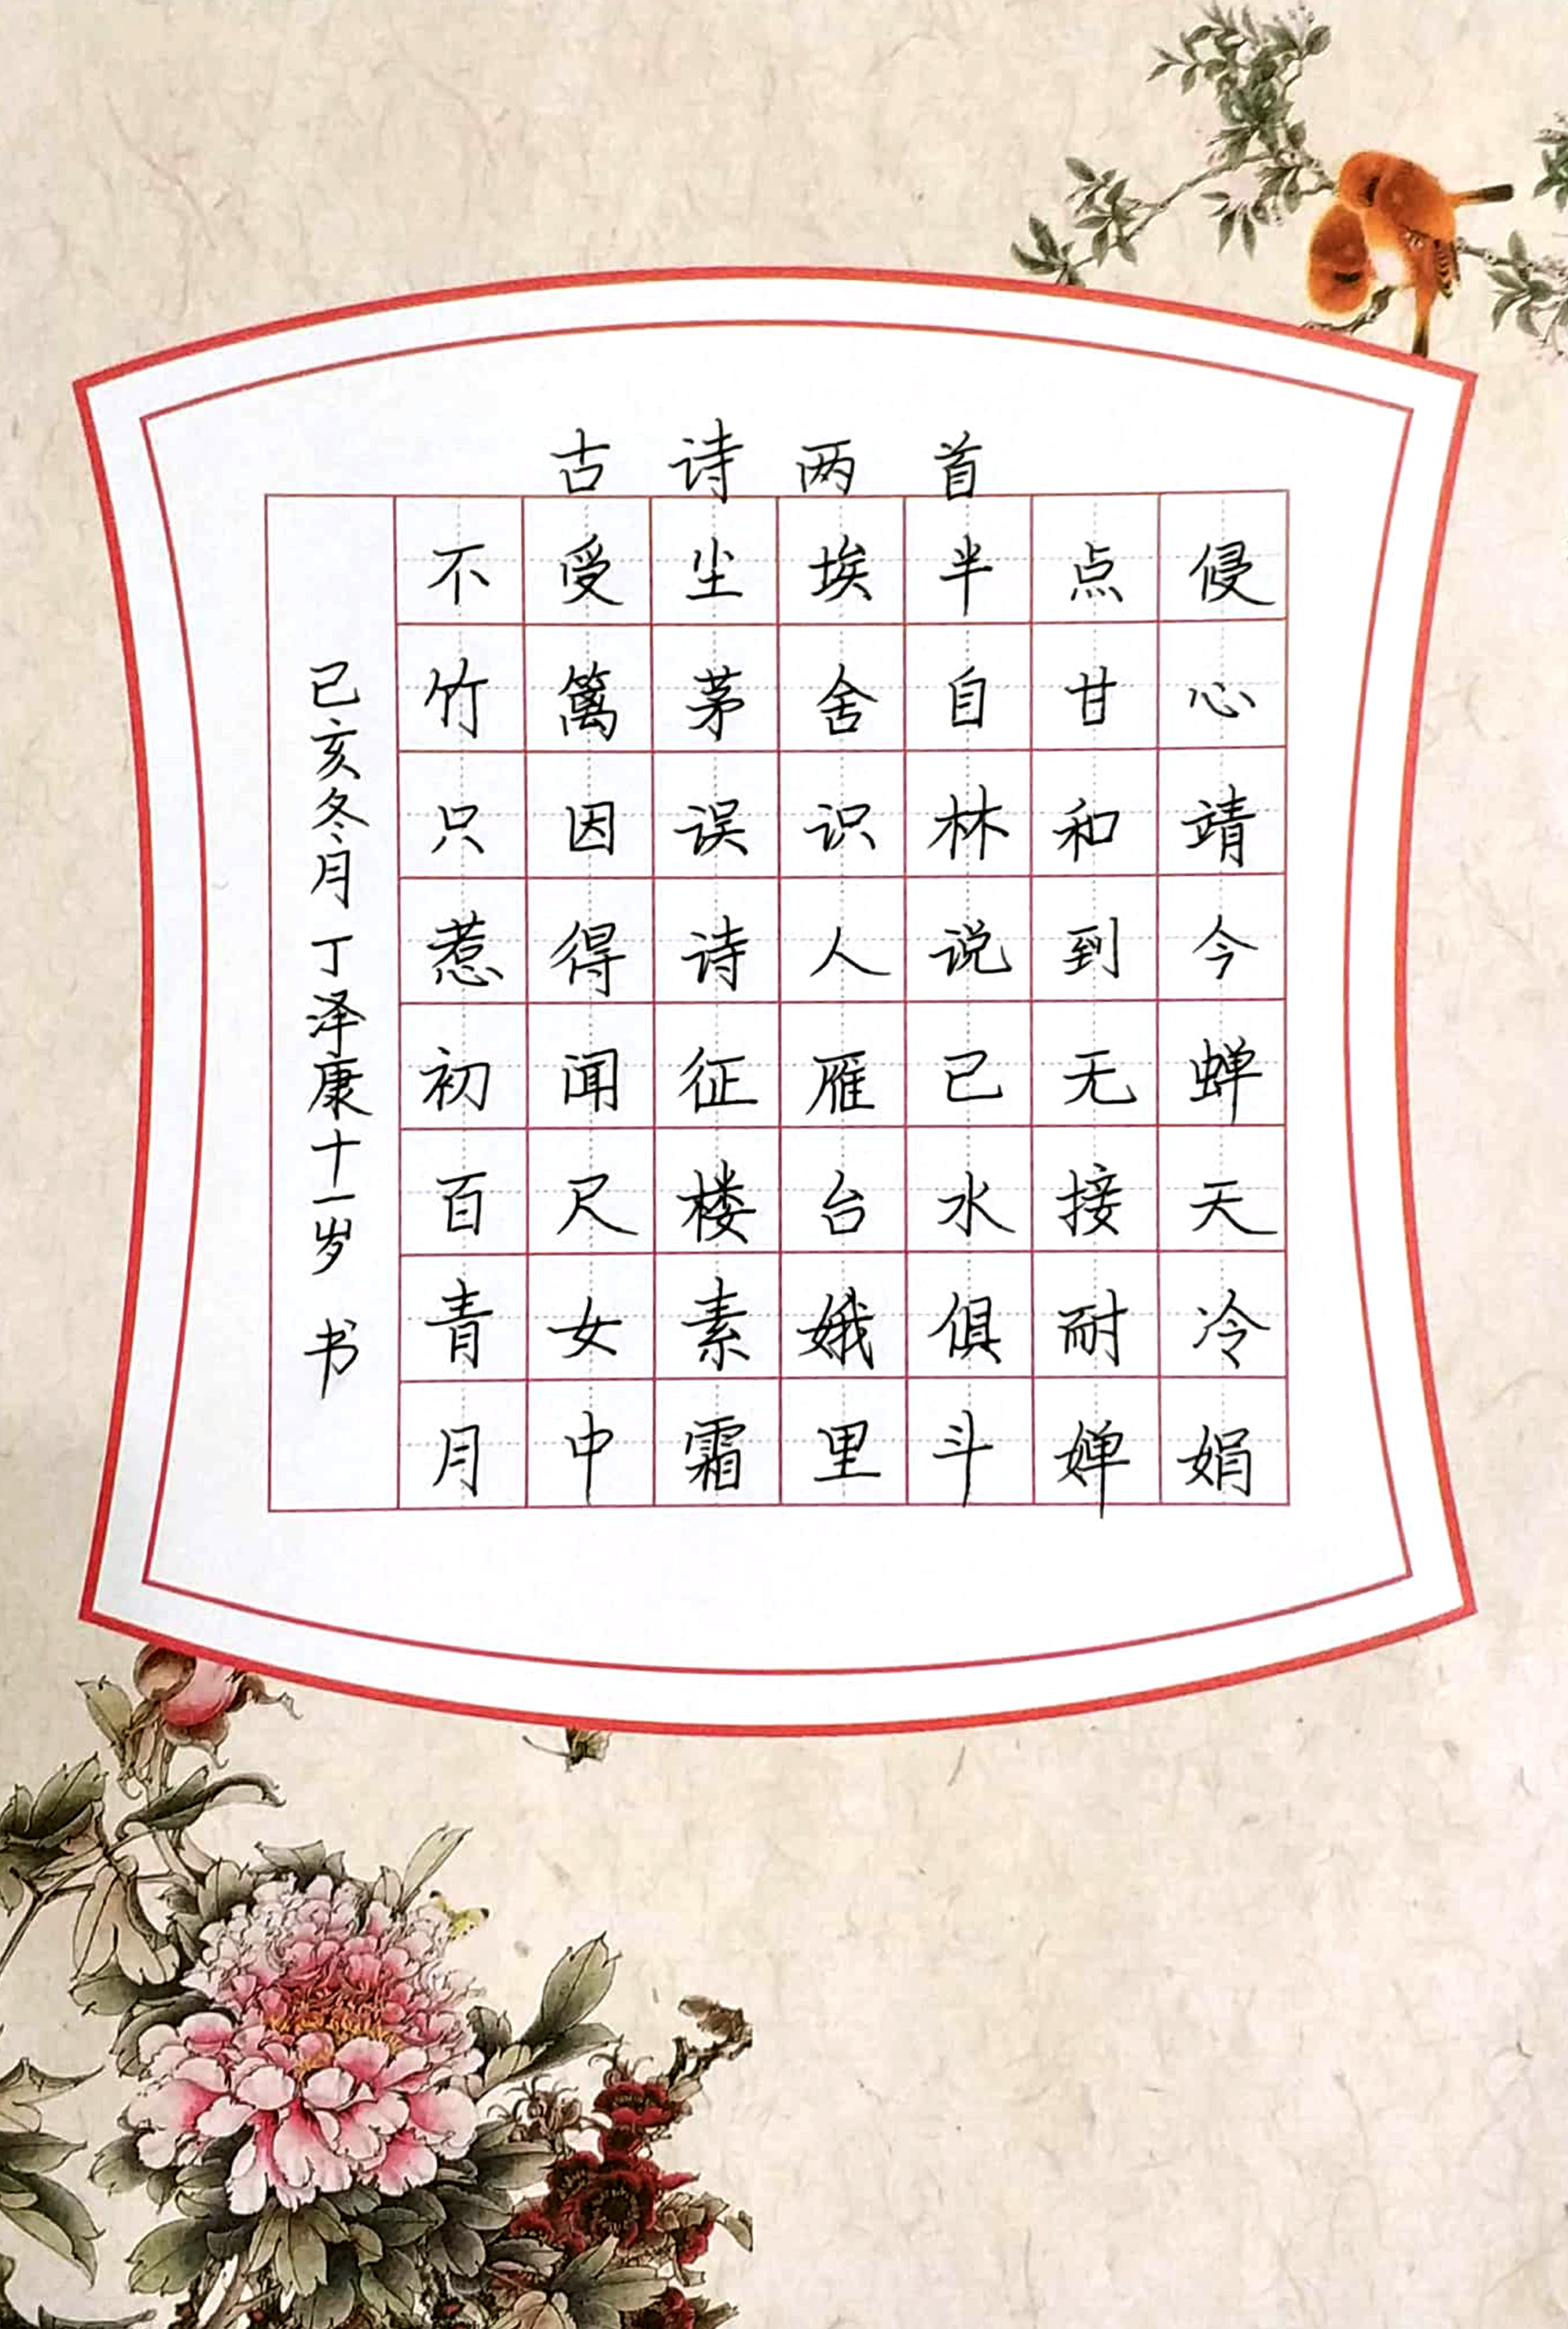 古诗两首
不受尘埃半点侵
竹篱茅舍自甘心
只因误识林和靖
惹得诗人说到今
初闻征雁已无蝉
百尺楼台水接天
青女素娥俱耐冷
月中霜里斗婵娟
己亥冬月丁泽康十一岁书